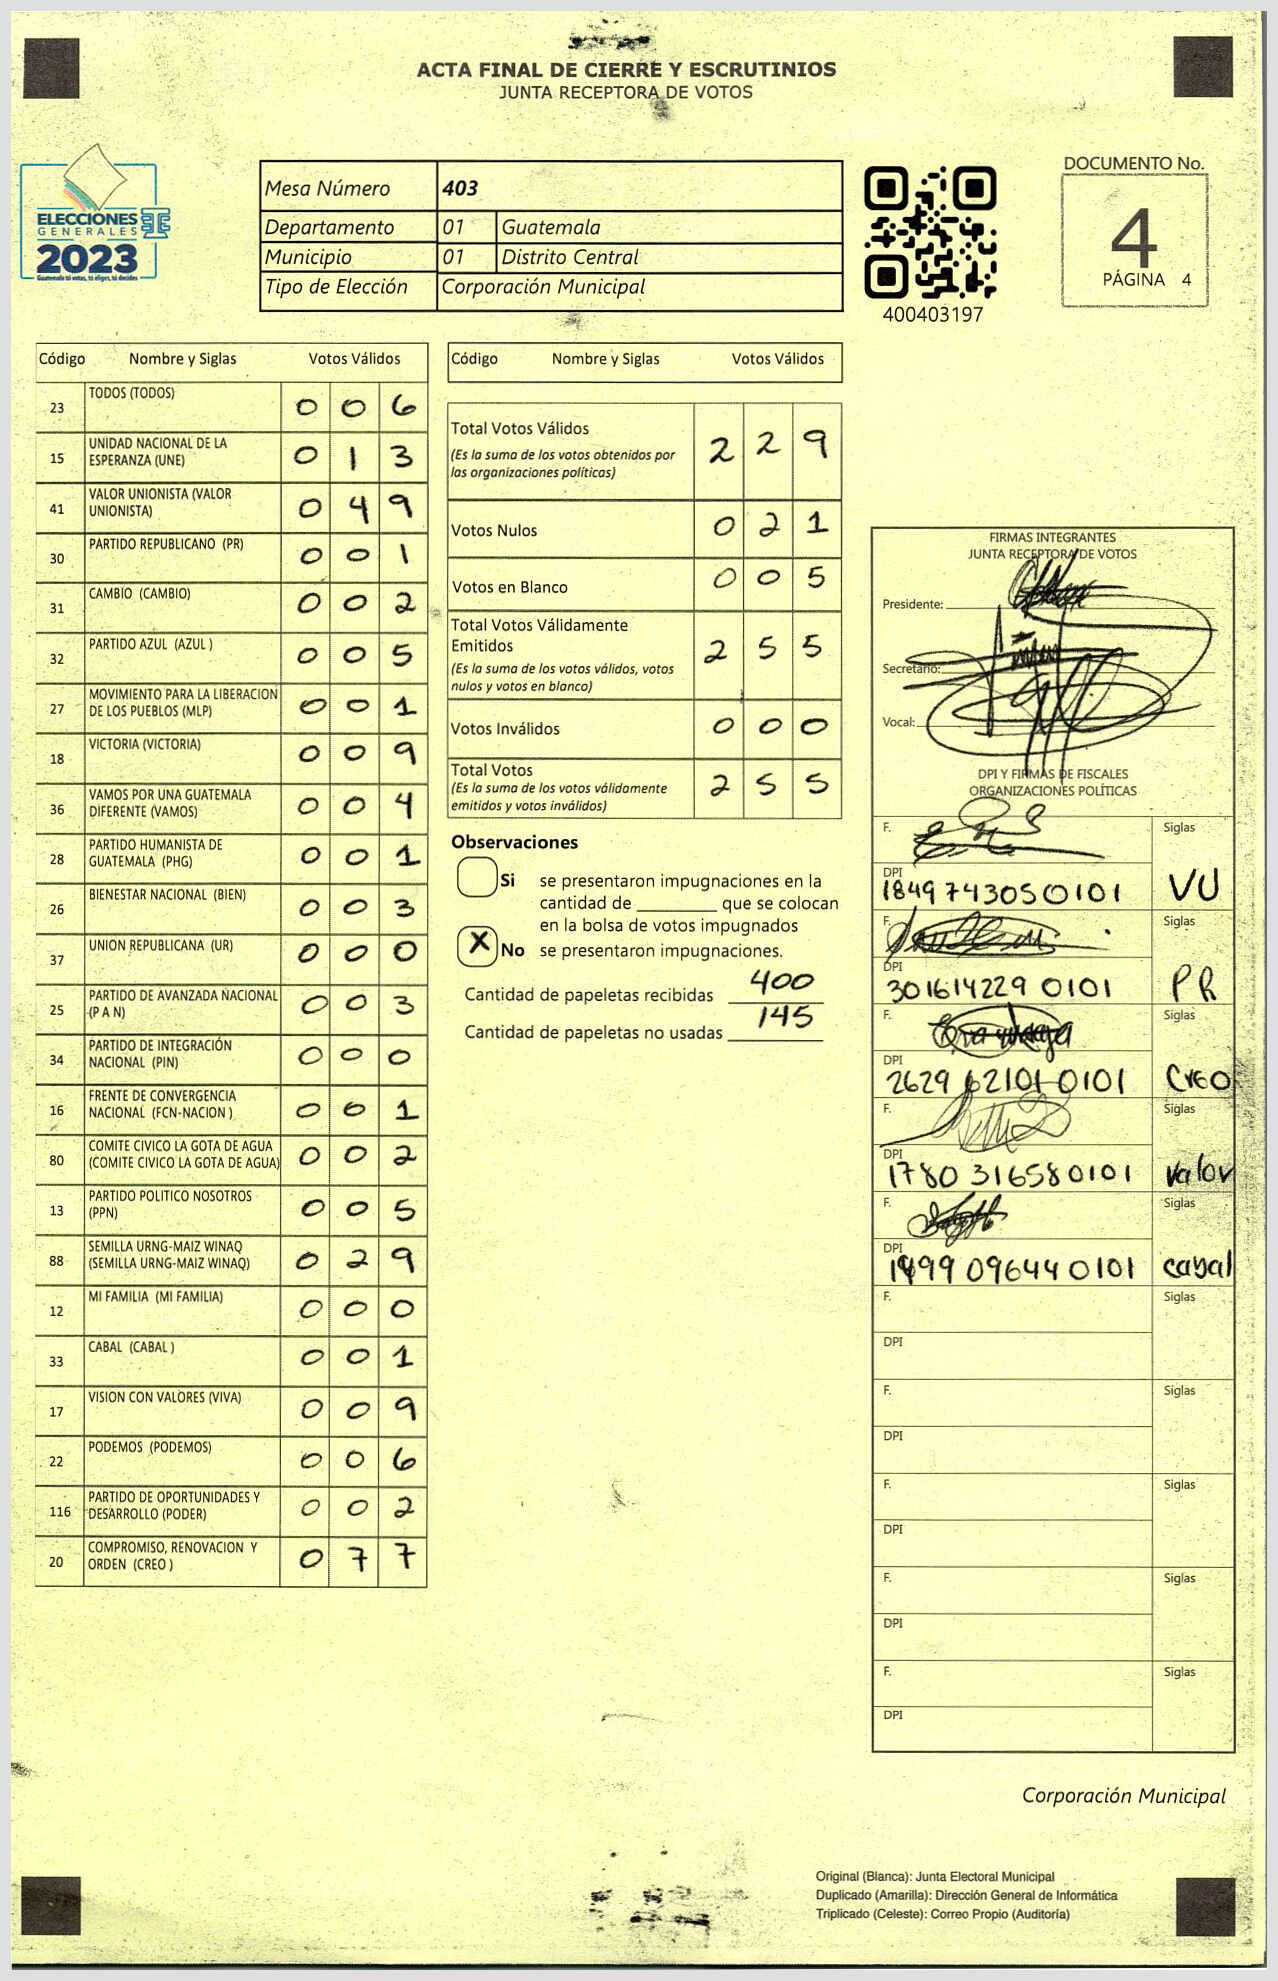 ACTA FINAL DE CIERRE Y ESCRUTINIOS
JUNTA RECEPTORA DE VOTOS
ELECCIONES
GENERALES
2023
Guatemala tú votas, tú eliges, tú decides
Mesa Número 403
Departamento 01 Guatemala
Municipio 01 Distrito Central
Tipo de Elección Corporación Municipal
400403197
DOCUMENTO No.
4
PÁGINA 4
Código Nombre y Siglas Votos Válidos
23 TODOS (TODOS) 0 0 6
15 UNIDAD NACIONAL DE LA
ESPERANZA (UNE) 0 1 3
41 VALOR UNIONISTA (VALOR
UNIONISTA) 0 4 9
30 PARTIDO REPUBLICANO (PR) 0 0 1
31 CAMBIO (CAMBIO) 0 0 2
32 PARTIDO AZUL (AZUL ) 0 0 5
27 MOVIMIENTO PARA LA LIBERACION
DE LOS PUEBLOS (MLP) 0 0 1
18 VICTORIA (VICTORIA) 0 0 9
36 VAMOS POR UNA GUATEMALA
DIFERENTE (VAMOS) 0 0 4
28 PARTIDO HUMANISTA DE
GUATEMALA (PHG) 0 0 1
26 BIENESTAR NACIONAL (BIEN) 0 0 3
37 UNION REPUBLICANA (UR) 0 0 0
25 PARTIDO DE AVANZADA NACIONAL
(P A N) 0 0 3
34 PARTIDO DE INTEGRACIÓN
NACIONAL (PIN) 0 0 0
16 FRENTE DE CONVERGENCIA
NACIONAL (FCN-NACION ) 0 0 1
80 COMITE CIVICO LA GOTA DE AGUA
(COMITE CIVICO LA GOTA DE AGUA) 0 0 2
13 PARTIDO POLITICO NOSOTROS
(PPN) 0 0 5
88 SEMILLA URNG-MAIZ WINAQ
(SEMILLA URNG-MAIZ WINAQ) 0 2 9
12 MI FAMILIA (MI FAMILIA) 0 0 0
33 CABAL (CABAL ) 0 0 1
17 VISION CON VALORES (VIVA) 0 0 9
22 PODEMOS (PODEMOS) 0 0 6
116 PARTIDO DE OPORTUNIDADES Y
DESARROLLO (PODER) 0 0 2
20 COMPROMISO, RENOVACION Y
ORDEN (CREO ) 0 7 7
Código Nombre y Siglas Votos Válidos
Total Votos Válidos 2 2 9
(Es la suma de los votos obtenidos por
las organizaciones políticas)
Votos Nulos 0 2 1
Votos en Blanco 0 0 5
Total Votos Válidamente
Emitidos 2 5 5
(Es la suma de los votos válidos, votos
nulos y votos en blanco)
Votos Inválidos 0 0 0
Total Votos 2 5 5
(Es la suma de los votos válidamente
emitidos y votos inválidos)
Observaciones
Si se presentaron impugnaciones en la
cantidad de ________ que se colocan
en la bolsa de votos impugnados
X No se presentaron impugnaciones.
Cantidad de papeletas recibidas 400
Cantidad de papeletas no usadas 145
FIRMAS INTEGRANTES
JUNTA RECEPTORA DE VOTOS
Presidente:
Secretario:
Vocal:
DPI Y FIRMAS DE FISCALES
ORGANIZACIONES POLÍTICAS
F. Siglas
DPI
1849743050101 VU
F. Siglas
DPI
301614229 0101 PR
F. Siglas
DPI
2629 62101 0101 Creo
F. Siglas
DPI
1780 316580101 valor
F. Siglas
DPI
1499 096440101 cabal
F. Siglas
DPI
F. Siglas
DPI
F. Siglas
DPI
F. Siglas
DPI
F. Siglas
DPI
Corporación Municipal
Original (Blanca): Junta Electoral Municipal
Duplicado (Amarilla): Dirección General de Informática
Triplicado (Celeste): Correo Propio (Auditoría)